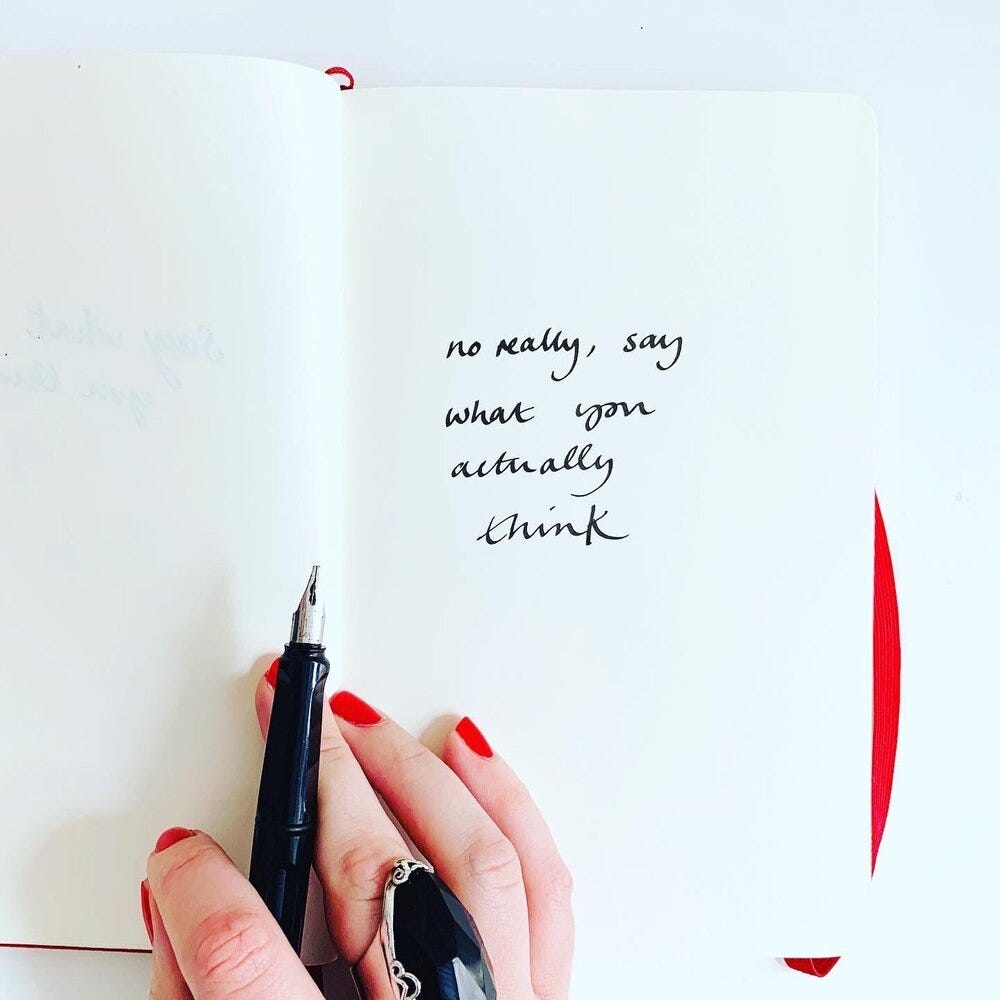 no really, say
what you
actually
think